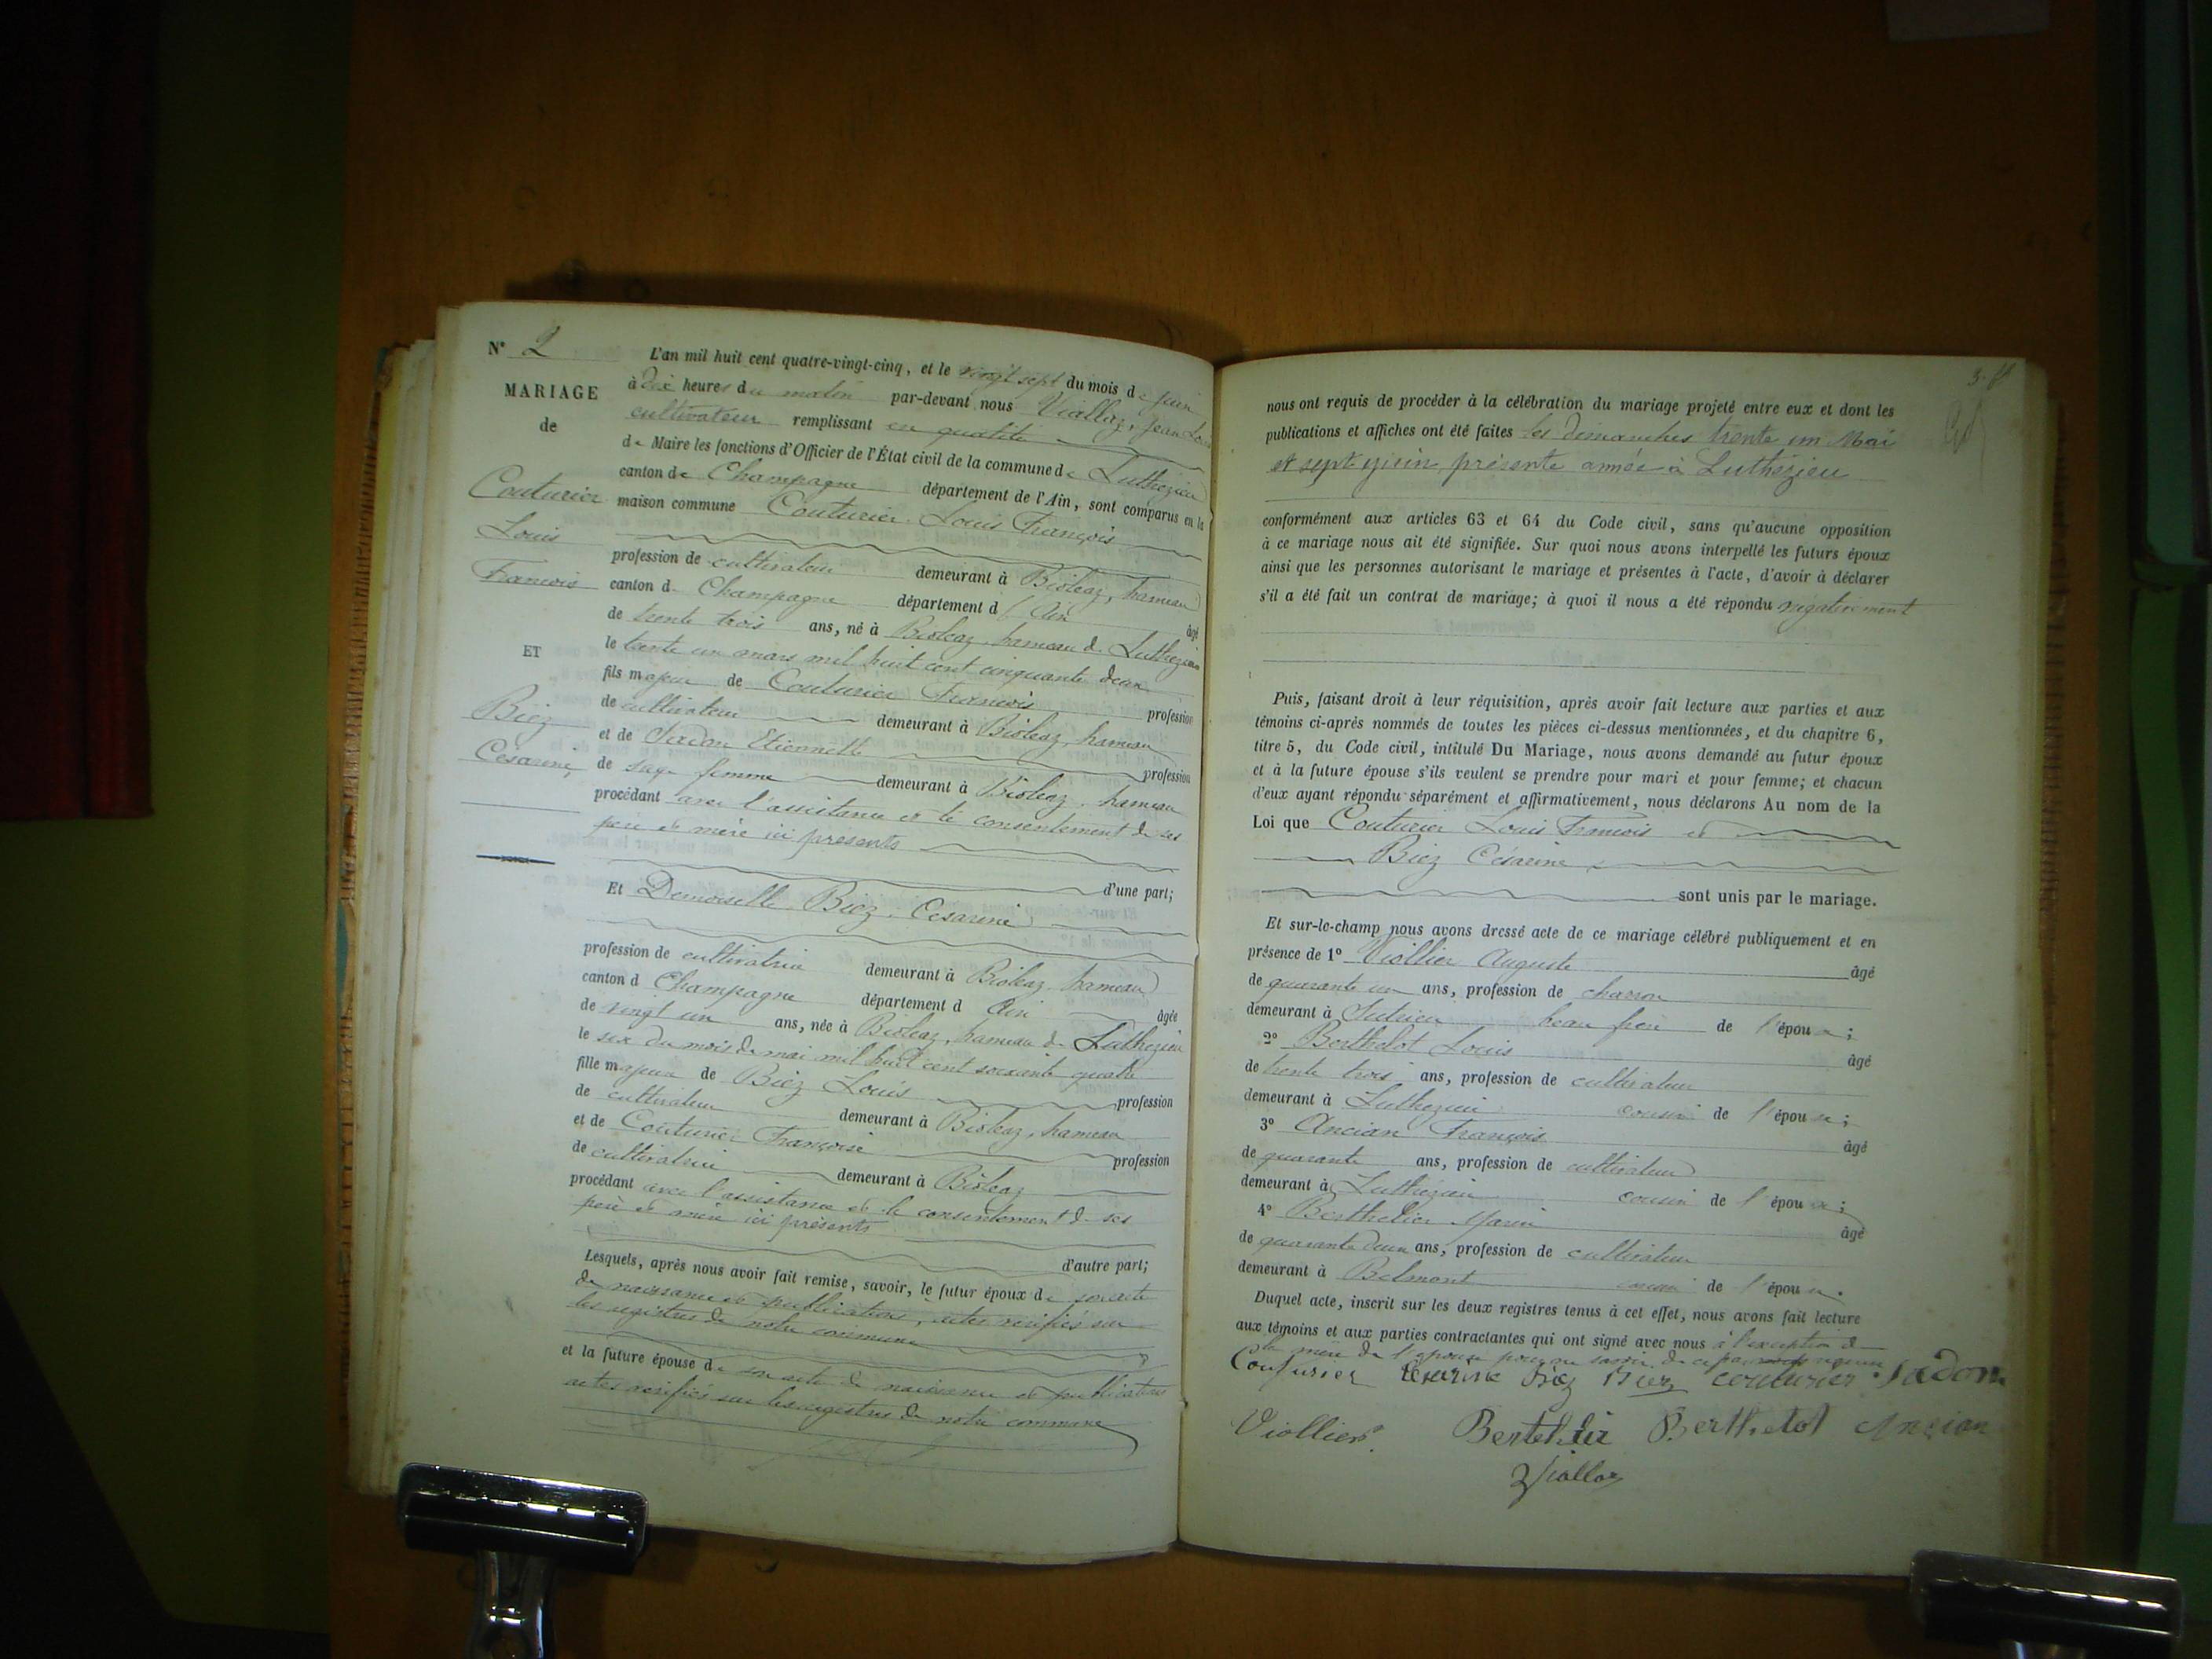 N° 2
MARIAGE
de
Couturier
Louis
François
ET
Biez
Césarine
L'an mil huit cent quatre-vingt-cinq, et le vingt sept du mois de juin
à dix heures du matin par-devant nous Viallaz, Jean Louis
cultivateur remplissant en qualité
de Maire les fonctions d'Officier de l'État civil de la commune de Luthezieu
canton de Champagne département de l'Ain, sont comparus en la
maison commune Couturier Louis François
profession de cultivateur demeurant à Bioleaz, hameau
canton d. Champagne département d l'Ain âgé
de trente trois ans, né à Bioleaz hameau de Luthezieu
le trente un mars mil huit cent cinquante deux
fils majeur de Couturier François profession
de cultivateur demeurant à Bioleaz, hameau
et de Jadon Etiennette profession
de sage femme demeurant à Bioleaz, hameau
procédant avec l'assistance et le consentement de ses
père et mère ici présents
d'une part;
Et Demoiselle Biez, Césarine
profession de cultivatrice demeurant à Bioleaz hameau
canton d Champagne département d Ain âgée
de vingt un ans, née à Bioleaz, hameau de Luthezieu
le six du mois de mai mil huit cent soixante quatre
fille majeure de Biez Louis profession
de cultivateur demeurant à Bioleaz, hameau
et de Couturier Françoise profession
de cultivatrice demeurant à Bioleaz
procédant avec l'assistance et le consentement de ses
père et mère ici présents
d'autre part;
Lesquels, après nous avoir fait remise, savoir, le futur époux de son acte
de naissance et publications, actes vérifiés sur
les registres de notre commune
et la future épouse de son acte de naissance et publications
actes vérifiés sur les registres de notre commune
nous ont requis de procéder à la célébration du mariage projeté entre eux et dont les
publications et affiches ont été faites les dimanches trente un Mai
et sept juin, présente année à Luthézieu
conformément aux articles 63 et 64 du Code civil, sans qu'aucune opposition
à ce mariage nous ait été signifiée. Sur quoi nous avons interpellé les futurs époux
ainsi que les personnes autorisant le mariage et présentes à l'acte, d'avoir à déclarer
s'il a été fait un contrat de mariage; à quoi il nous a été répondu négativement
Puis, faisant droit à leur réquisition, après avoir fait lecture aux parties et aux
témoins ci-après nommés de toutes les pièces ci-dessus mentionnées, et du chapitre 6,
titre 5, du Code civil, intitulé Du Mariage, nous avons demandé au futur époux
et à la future épouse s'ils veulent se prendre pour mari et pour femme; et chacun
d'eux ayant répondu séparément et affirmativement, nous déclarons Au nom de la
Loi que Couturier Louis François et
Biez Césarine
sont unis par le mariage.
Et sur-le-champ nous avons dressé acte de ce mariage célébré publiquement et en
présence de 1° Viollier Auguste âgé
de quarante un ans, profession de charron
demeurant à Sutrieu beau frère de l'époux;
2° Berthelot Louis âgé
de trente trois ans, profession de cultivateur
demeurant à Luthezieu cousin de l'époux;
3° Ancian François âgé
de quarante ans, profession de cultivateur
demeurant à Luthezieu cousin de l'époux;
4° Berthelier Marin âgé
de quarante deux ans, profession de cultivateur
demeurant à Belmont cousin de l'époux.
Duquel acte, inscrit sur les deux registres tenus à cet effet, nous avons fait lecture
aux témoins et aux parties contractantes qui ont signé avec nous à l'exception de
la mère de l'épouse pour ne savoir de ce par nous requise
Couturier Césarine Biez Biez couturier Jadon
Viollier Berthelier Berthelot Ancian
Viallaz